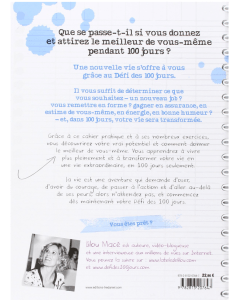 Que se passe-t-il si vous donnez
et attirez le meilleur de vous-même
pendant 100 jours ?
Une nouvelle vie s'offre à vous
grâce au Défi des 100 jours.
Il vous suffit de déterminer ce que
vous souhaitez – un nouveau job ?
vous remettre en forme ? gagner en assurance, en
estime de vous-même, en énergie, en bonne humeur ?
– et, dans 100 jours, votre vie sera transformée.
Grâce à ce cahier pratique et à ses nombreux exercices,
vous découvrirez votre vrai potentiel et comment donner
le meilleur de vous-même. Vous apprendrez à vivre
plus pleinement et à transformer votre vie en
une vie extraordinaire, en 100 jours.
La vie est une aventure qui demande d'oser,
d'avoir du courage, de passer à l'action et d'aller au-delà
de ses peurs, alors n'attendez pas, et commencez
dès maintenant votre Défi des 100 jours.
Vous êtes prêt ?
Lilou Macé est auteure, vidéo-blogueuse
et une intervieweuse aux millions de vues sur Internet.
Vous pouvez la suivre sur